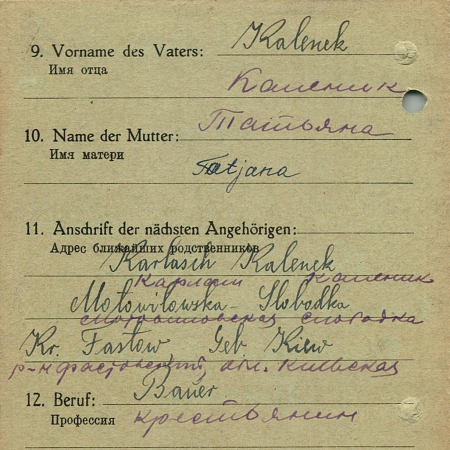 9. Vorname des Vaters: Kalenek
Имя отца
Каленик
10. Name der Mutter: Татьяна
Имя матери
Tatjana
11. Anschrift der nächsten Angehörigen:
Адрес ближайших родственников
Karlasch Kalenek
Карлаш Каленик
Motowilowska-Slobodka
Мотовиловская слободка
Kr. Fastow, Geb Kiew
р-н Фастовский, обл. Киевская
12. Beruf: Bauer
Профессия крестьянин